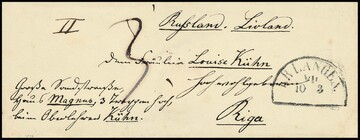 II
Rußland. Livland.
3
Dem Fräulein Louise Kühn
Hochwohlgeboren
Große Sandstraße,
Haus Magnus, 3 Treppen hoch
beim Oberlehrer Kühn.
Riga
ERLANGEN.
10 3